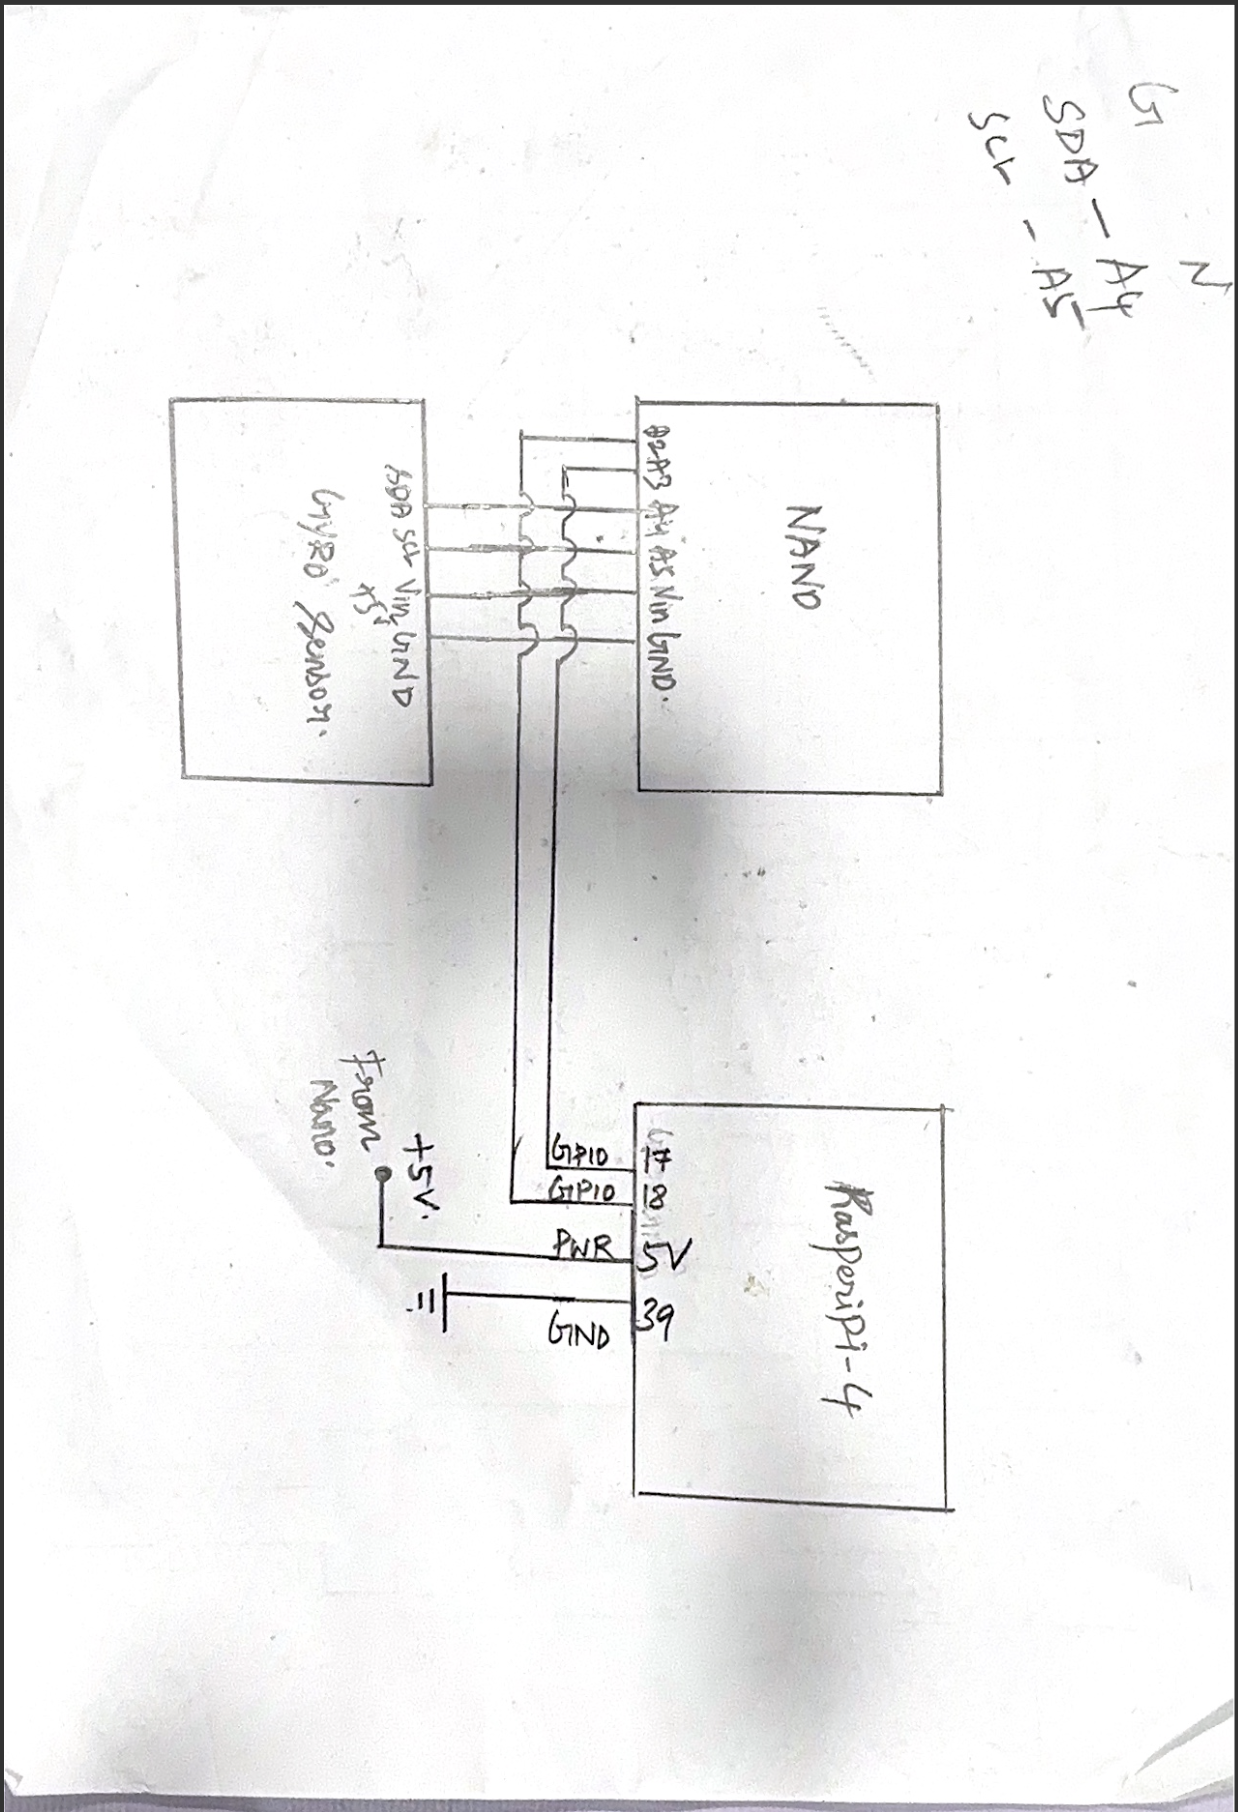 G N
SDA - A4
SCL - A5
NAND
A2 A3 A4 A5 Vin GND.
SDA SCL Vin GND
+5V
GYRO Sensor.
Rasperipi-4
17 18 5V 39
GPIO
GPIO
PWR
GND
+5V.
From
Nano.